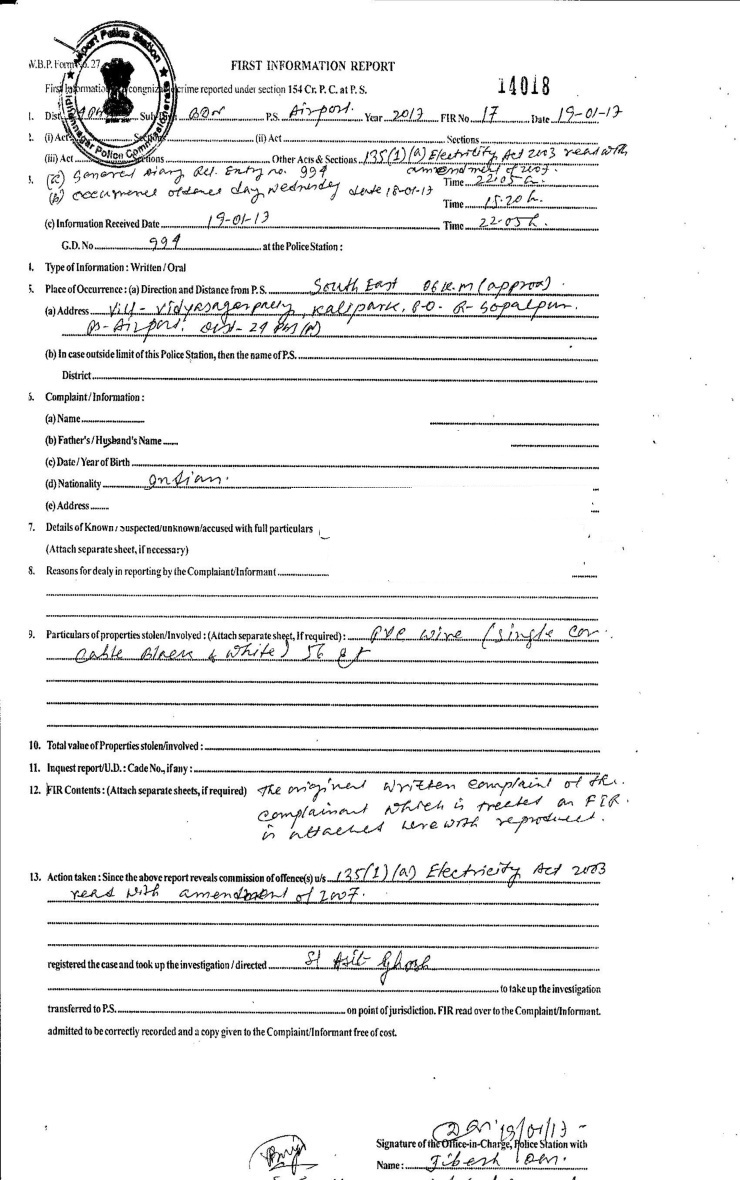 Airport Police Station
Bidhannagar Police Commissionerate
W.B.P. Form No. 27
FIRST INFORMATION REPORT
14018
First Information of cognizable crime reported under section 154 Cr. P. C. at P. S.
1. Dist. Sub P.S. Airport. Year 2017 FIR No 17 Date 19-01-17
2. (i) Act Sections (ii) Act Sections
(iii) Act Sections Other Acts & Sections 135(1)(a) Electricity Act 2003 read with
amendment of 2007.
3. (a) General Diary Ref. Entry no. 994 Time 22.05 h.
(b) occurrence of offence day Wednesday date 18-01-17 Time 15.20 h.
(c) Information Received Date 19-01-17 Time 22.05 h.
G.D. No 994 at the Police Station :
4. Type of Information : Written / Oral
5. Place of Occurrence : (a) Direction and Distance from P. S. South East 06 k.m (approx).
(a) Address Vill- Vidyasagarpally, Kalipark, P.O- R- Gopalpur.
PS- Airport. Dist- 24 PGS (N)
(b) In case outside limit of this Police Station, then the name of P.S.
District
6. Complaint / Information :
(a) Name
(b) Father's / Husband's Name
(c) Date / Year of Birth
(d) Nationality Indian.
(e) Address
7. Details of Known / Suspected/unknown/accused with full particulars
(Attach separate sheet, if necessary)
8. Reasons for dealy in reporting by the Complaiant/Informant
9. Particulars of properties stolen/Involved : (Attach separate sheet, If required) : PVC wire (single cor
cable Black & White) 56 ft
10. Total value of Properties stolen/involved :
11. Inquest report/U.D. : Cade No., if any :
12. FIR Contents : (Attach separate sheets, if required) The original written complaint of the.
complainant which is treated as FIR.
is attached herewith reproduced.
13. Action taken : Since the above report reveals commission of offence(s) u/s 135(1)(a) Electricity Act 2003
read with amendment of 2007.
registered the case and took up the investigation / directed SI Asit Ghosh
to take up the investigation
transferred to P.S. on point of jurisdiction. FIR read over to the Complaint/Informant.
admitted to be correctly recorded and a copy given to the Complaint/Informant free of cost.
19/01/17
Signature of the Office-in-Charge, Police Station with
Name :